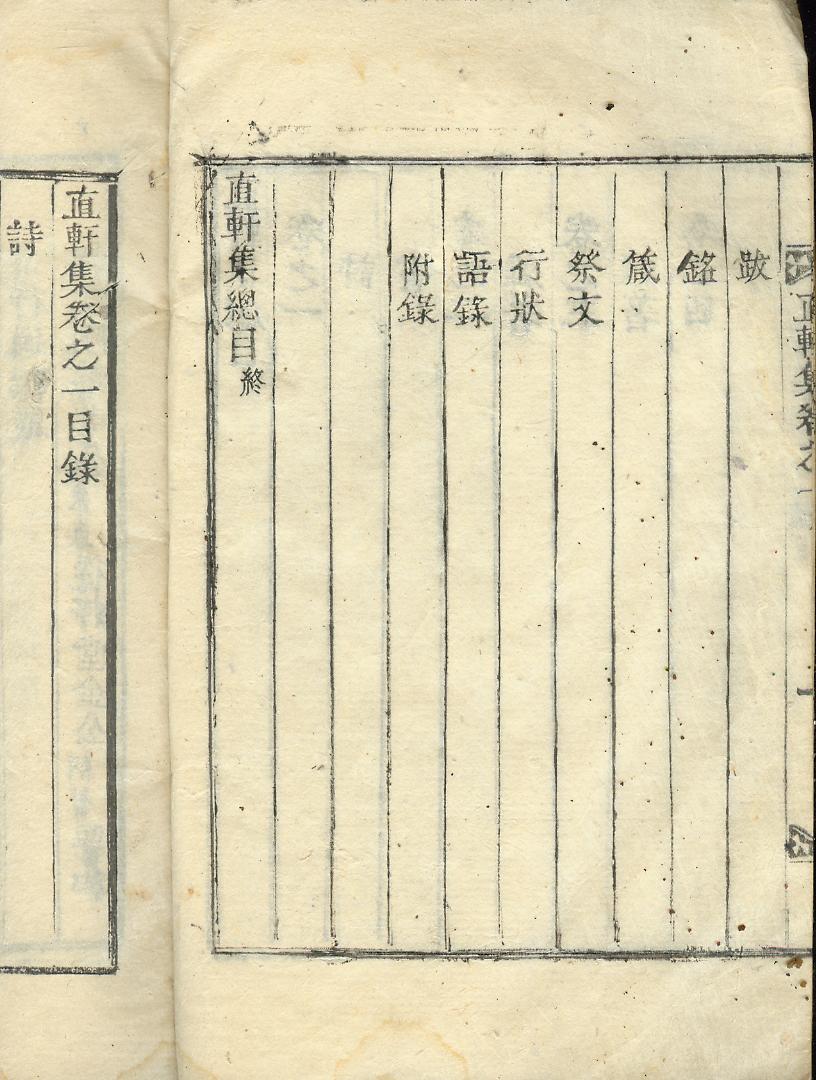 直軒集卷之一
一
跋
銘
箴
祭文
行狀
語錄
附錄
直軒集總目終
直軒集卷之一目錄
詩